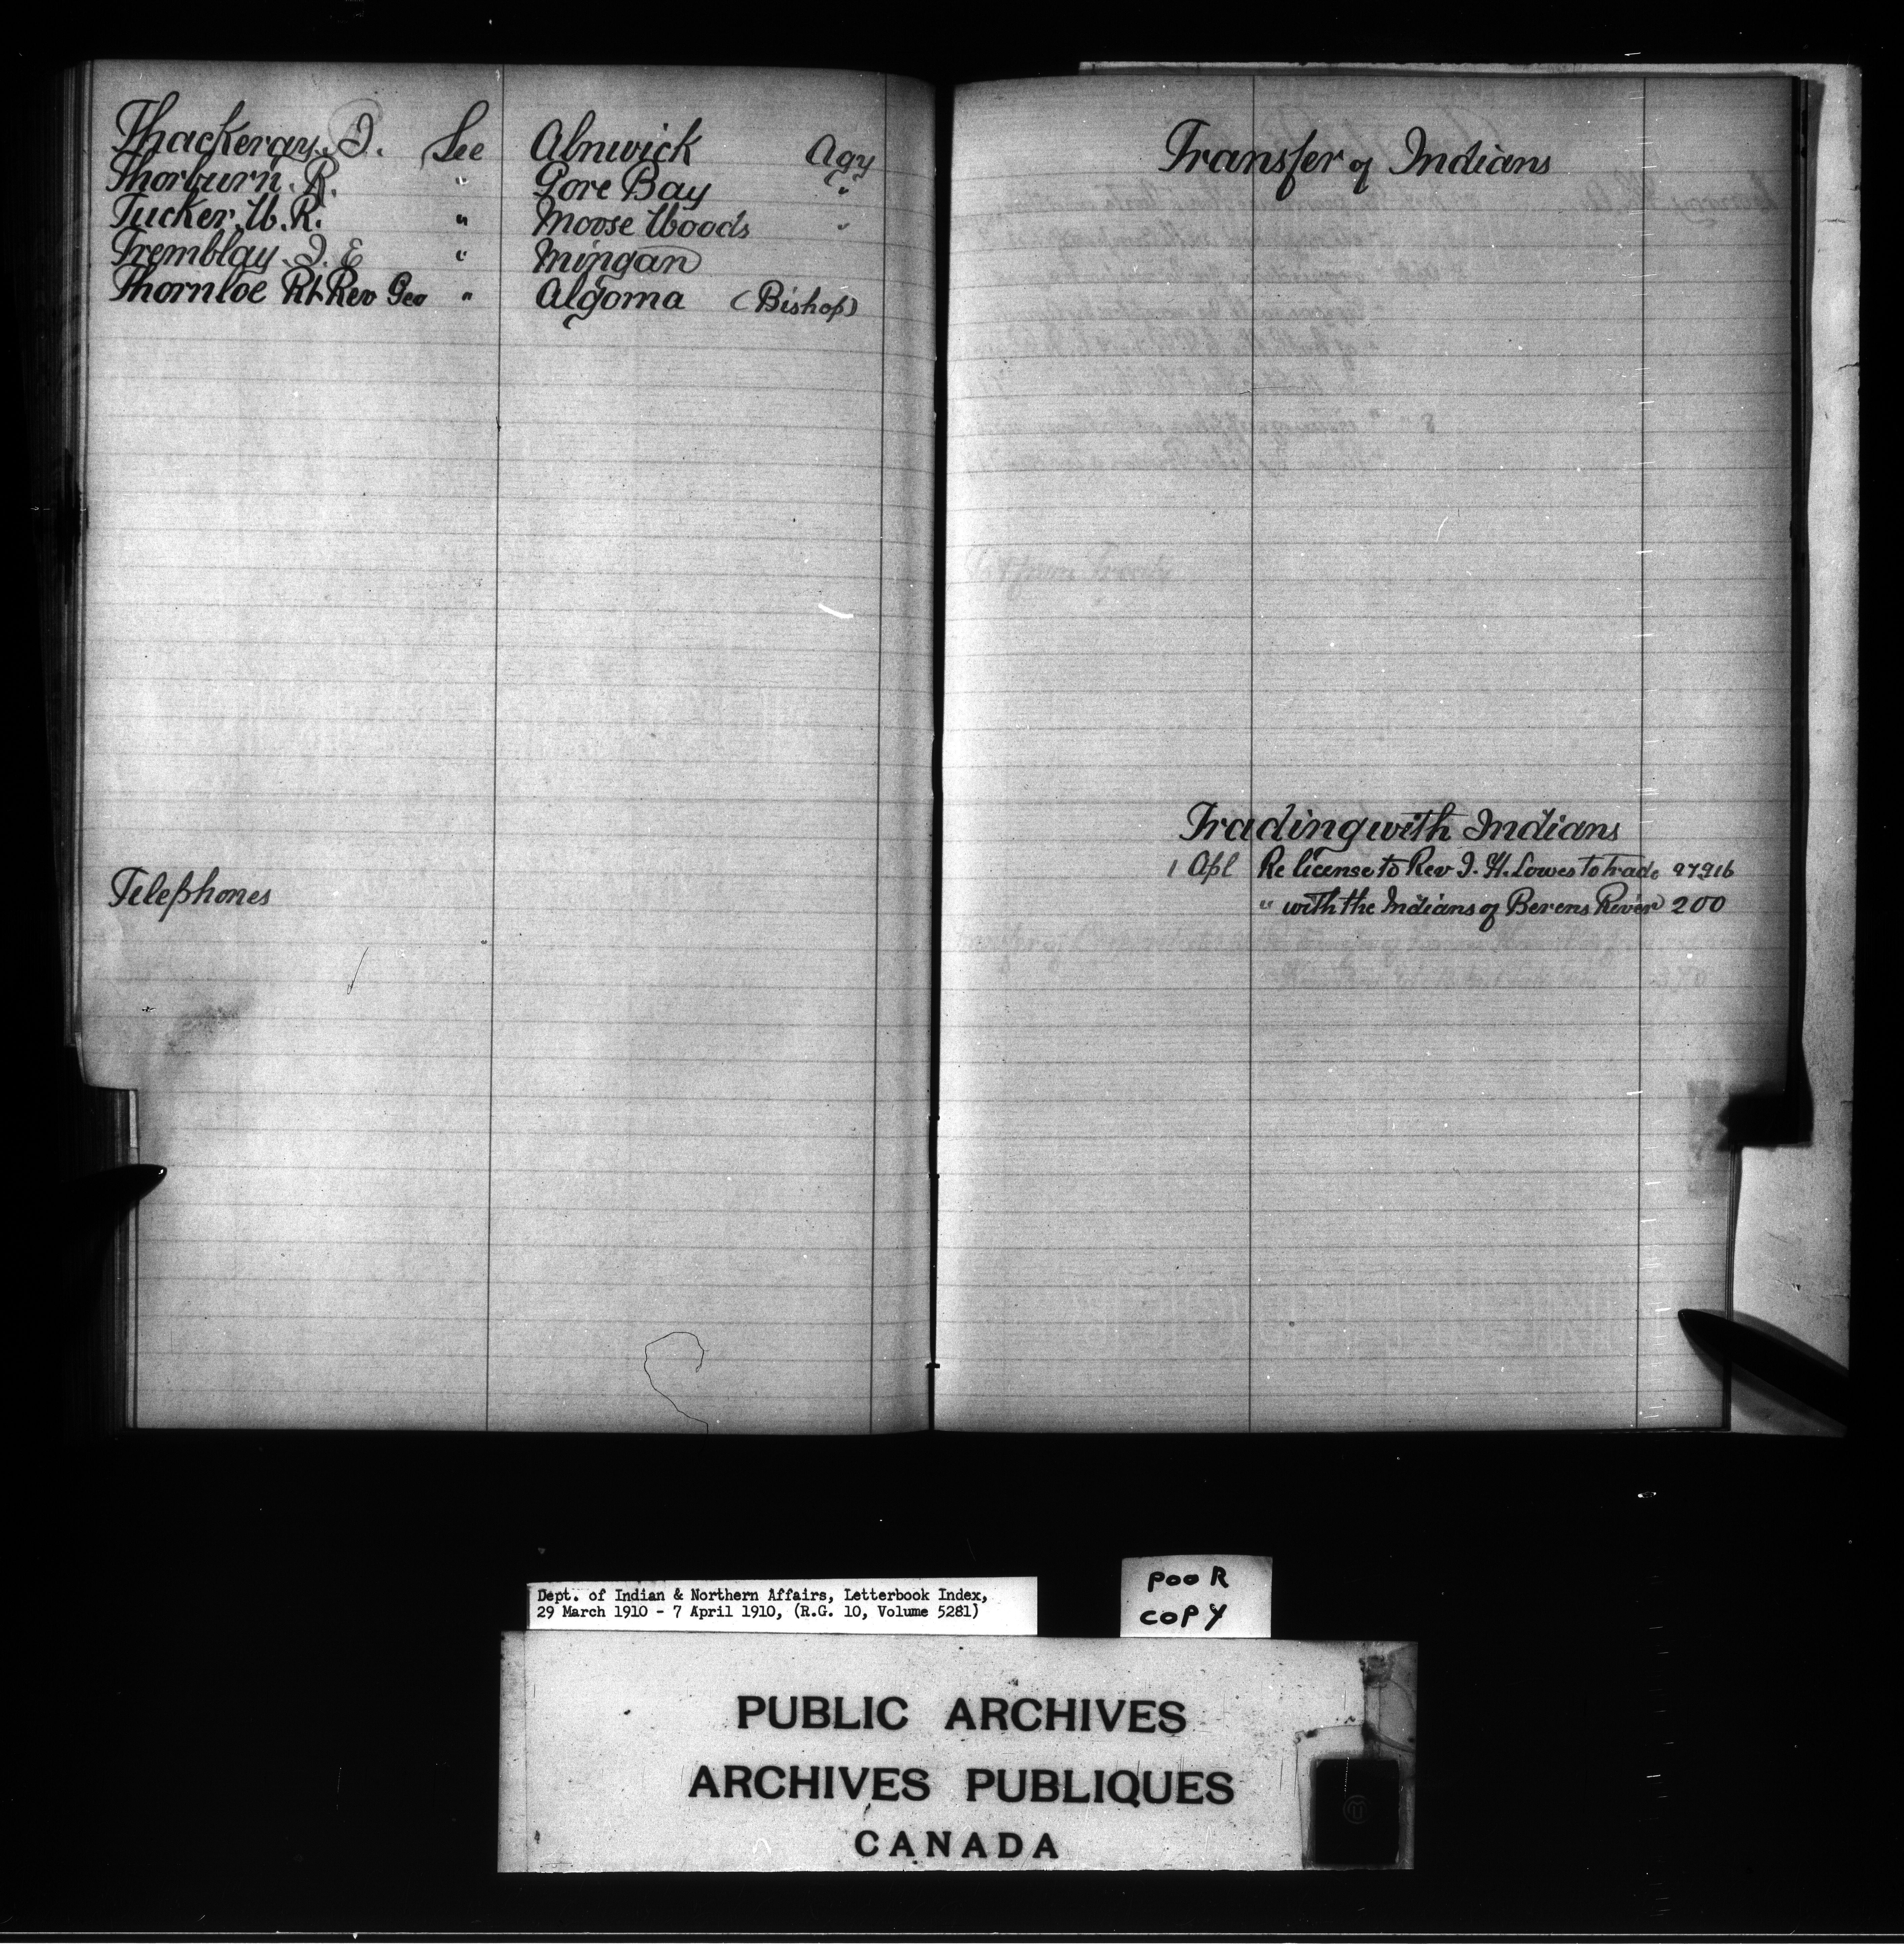 Thackeray. J. See Alnwick Agy
Thorburn. R. " Gore Bay "
Tucker. W. R. " Moose Woods "
Tremblay. J. E " Mingan
Thornloe Rt Rev Geo " Algoma (Bishop)
Telephones
Transfer of Indians
Trading with Indians
1 Apl Re license to Rev J. H. Lowes to trade 97916
" with the Indians of Berens River 200
Dept. of Indian & Northern Affairs, Letterbook Index,
29 March 1910 - 7 April 1910, (R.G. 10, Volume 5281)
POOR
COPY
PUBLIC ARCHIVES
ARCHIVES PUBLIQUES
CANADA